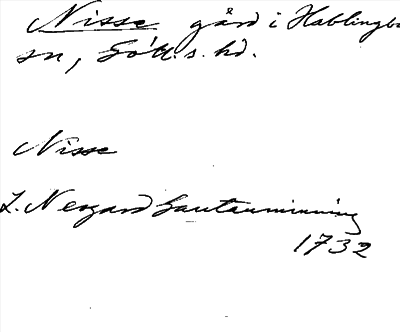 Nisse gård i Hablingbo
sn, Gotl. s. hd.
Nisse
L. Nergard Gautauminning
1732